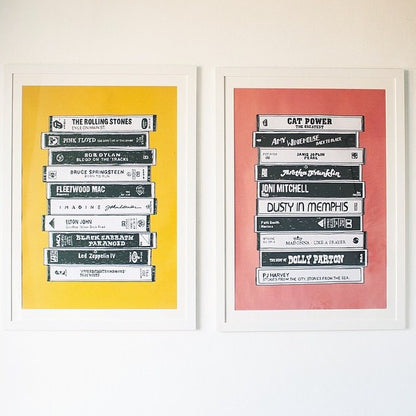 THE ROLLING STONES
EXILE ON MAIN ST.
PINK FLOYD
BOB DYLAN
BLOOD ON THE TRACKS
BRUCE SPRINGSTEEN
BORN TO RUN
FLEETWOOD MAC
IMAGINE John Lennon
ELTON JOHN
BLACK SABBATH
PARANOID
Led Zeppelin IV
CAT POWER
THE GREATEST
AMY WINEHOUSE BACK TO BLACK
JANIS JOPLIN
PEARL
Aretha Franklin
JONI MITCHELL
DUSTY IN MEMPHIS
Patti Smith
Horses
MADONNA LIKE A PRAYER
THE BEST OF DOLLY PARTON
PJ HARVEY
STORIES FROM THE CITY, STORIES FROM THE SEA